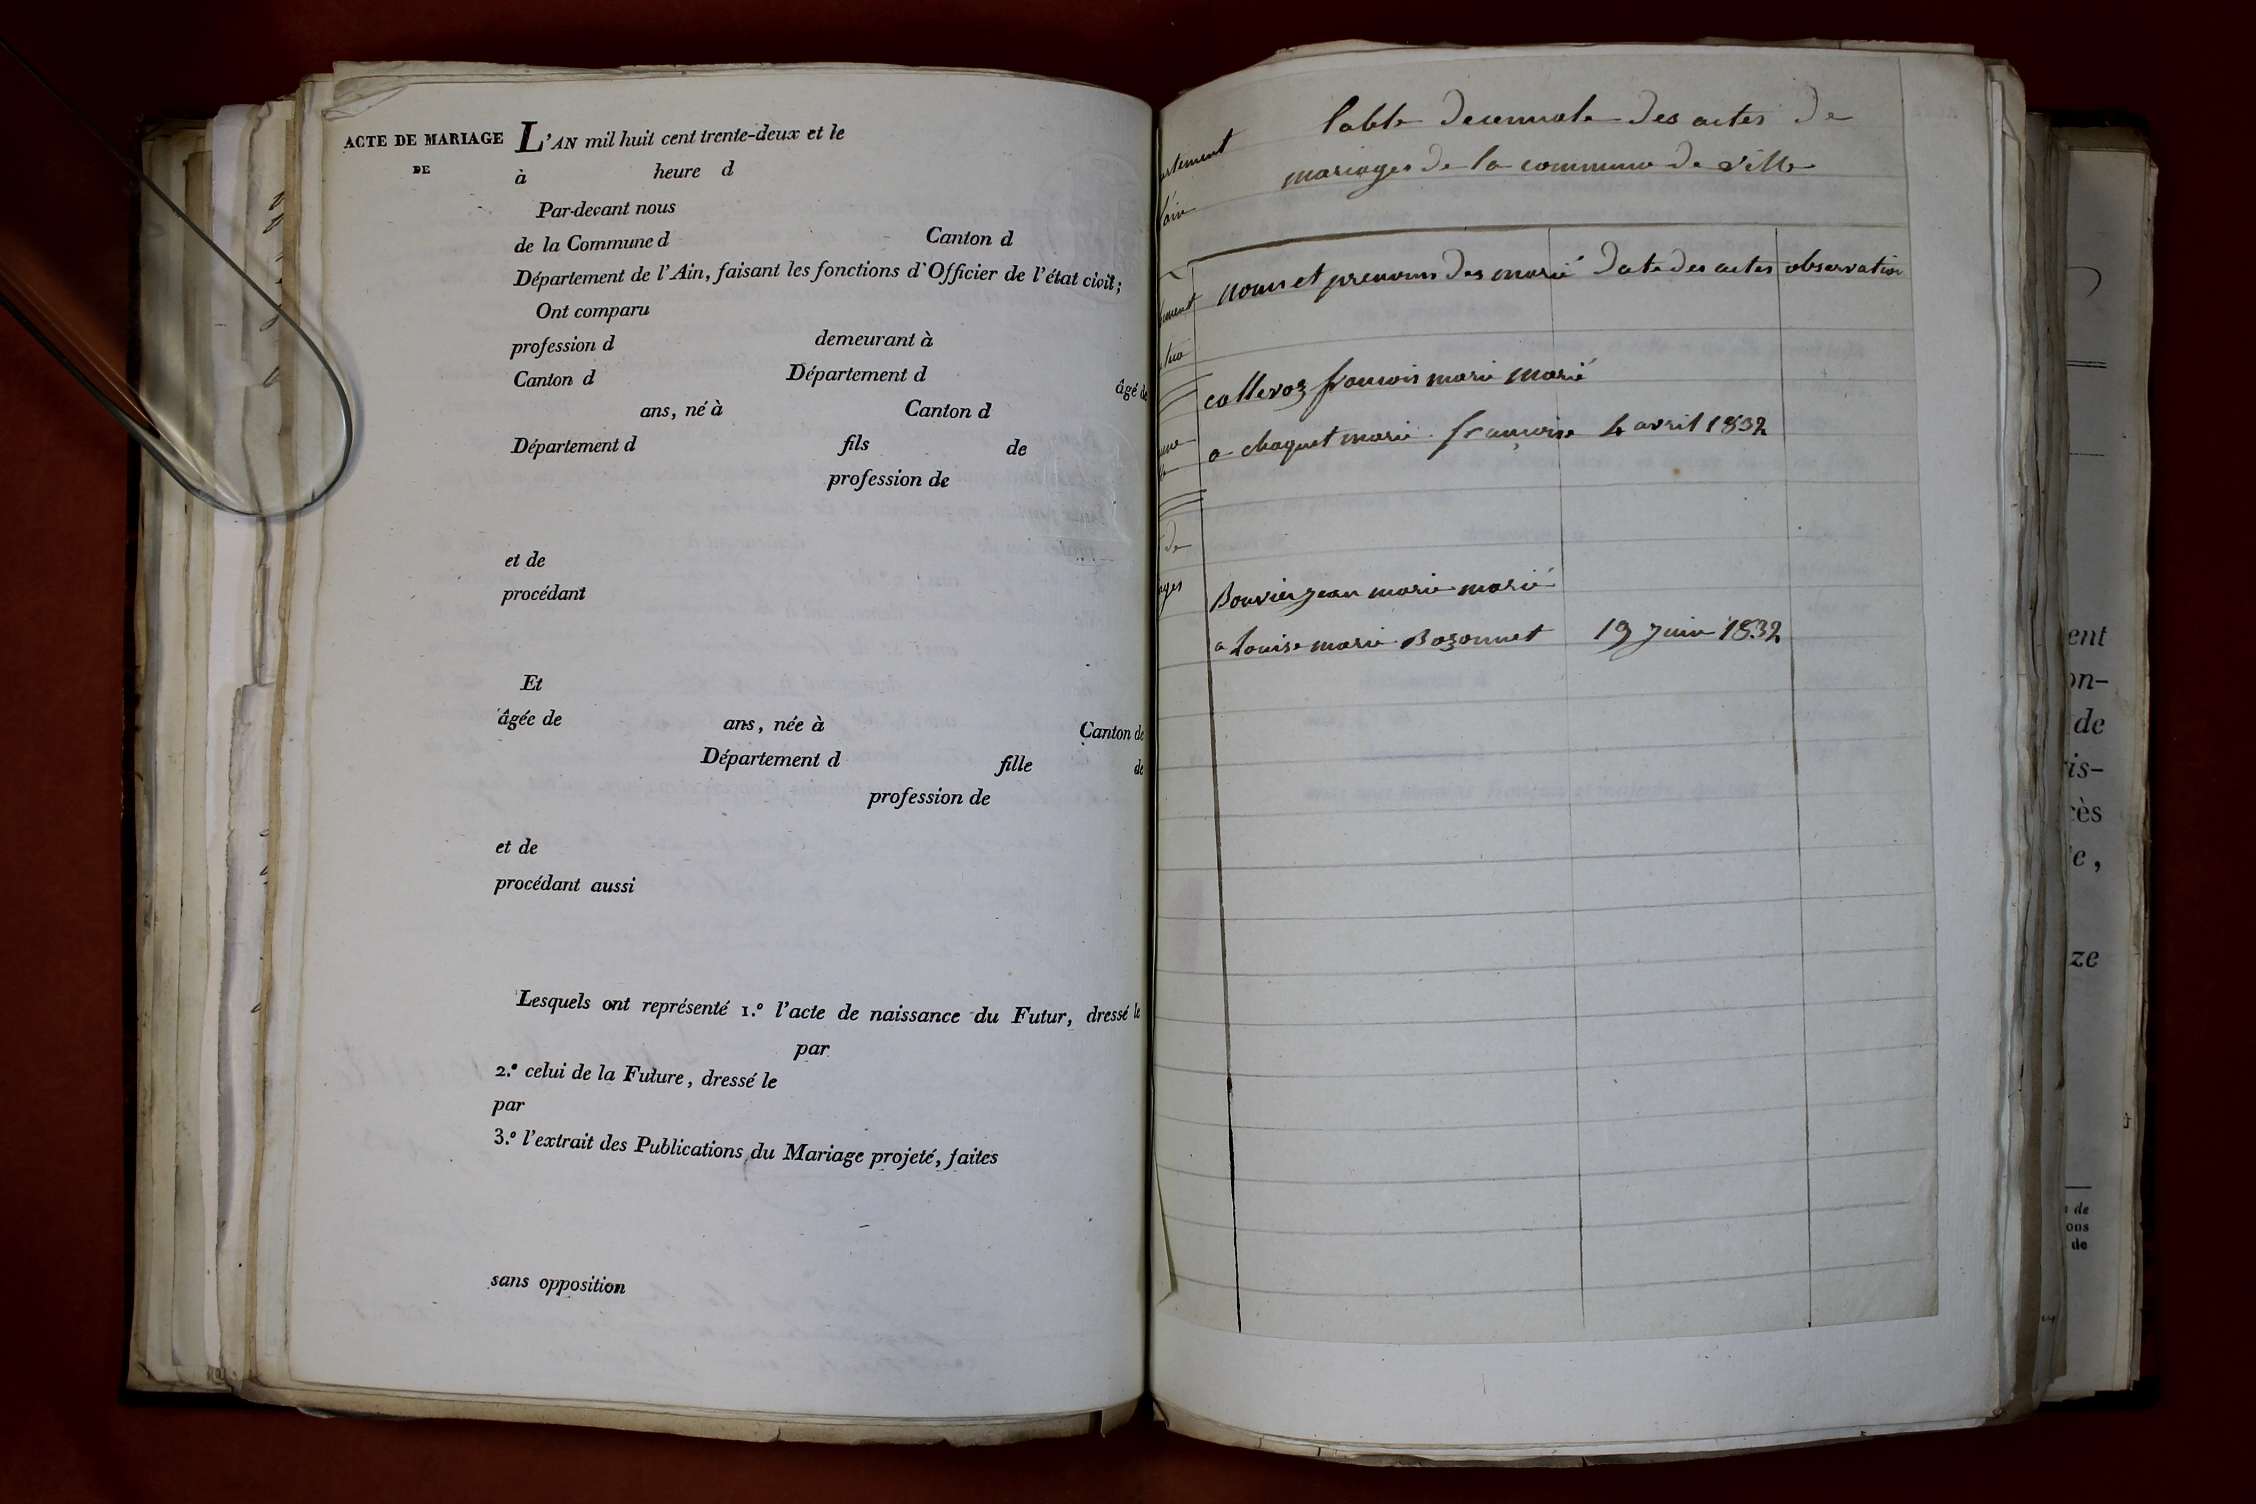 ACTE DE MARIAGE L'AN mil huit cent trente-deux et le
DE
à heure d
Par-devant nous
de la Commune d Canton d
Département de l'Ain, faisant les fonctions d'Officier de l'état civil;
Ont comparu
profession d demeurant à
Canton d Département d âgé de
ans, né à Canton d
Département d fils de
profession de
et de
procédant
Et
âgée de ans, née à Canton de
Département d fille de
profession de
et de
procédant aussi
Lesquels ont représenté 1.º l'acte de naissance du Futur, dressé le
par
2.º celui de la Future, dressé le
par
3.º l'extrait des Publications du Mariage projeté, faites
sans opposition
table decennale des actes de
mariages de la commune de ville
noms et prenoms des marié date des actes observation
colleroz francois marie marié
a chaquet marie francoise 4 avril 1832
Bouvier jean marie marié
a Louise marie Bozonnet 19 juin 1832
ent
on-
de
is-
cès
e,
ze
de
ons
de